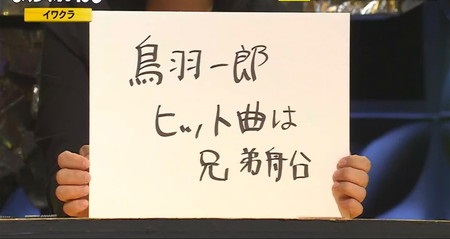 イワクラ
鳥羽一郎
ヒット曲は
兄弟船